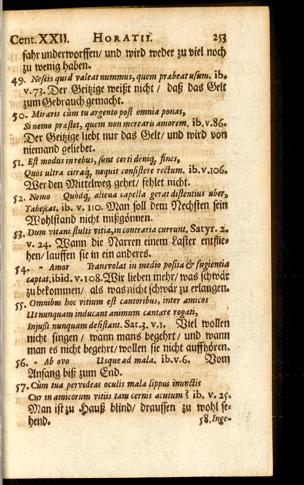 Cent. XXII. HORATII. 253
fahr underworffen/ und wird weder zu viel noch
zu wenig haben.
49. Nescis quid valeat nummus, quem præbeat usum. ib.
v. 73. Der Geitzige weißt nicht/ daß das Gelt
zum Gebrauch gemacht.
50. Miraris cùm tu argento post omnia ponas,
Si nemo præstet, quem non merearis amorem, ib. v. 86.
Der Geitzige liebt nur das Gelt/ und wird von
niemand geliebet.
51. Est modus in rebus, sunt certi deniq, fines,
Quos ultra citraq, nequit consistere rectum. ib. v. 106.
Wer den Mittelweg gehet/ fehlet nicht.
52. Nemo Quòdq, aliena capella gerat distentius uber,
Tabescat. ib. v. 110. Man soll dem Nechsten sein
Wohlstand nicht mißgönnen.
53. Dum vitant stulti vitia, in contraria currunt, Satyr. 2.
v. 24. Wann die Narren einem Laster entflie-
hen/ lauffen sie in ein anderes.
54. - Amor Transvolat in medio posita & fugientia
captat, ibid. v. 108. Wir lieben mehr/ was schwär
zu bekommen/ als was nicht schwär zu erlangen.
55. Omnibus hoc vitium est cantoribus, inter amicos
Ut nunquam inducant animum cantare rogati,
Injussi nunquam desistant. Sat. 3. v. 1. Viel wollen
nicht singen/ wann mans begehrt/ und wann
man es nicht begehrt/ wollen sie nicht auffhören.
56. - Ab ovo Usque ad mala. ib. v. 6. Vom
Anfang biß zum End.
57. Cùm tua pervideas oculis mala lippus inunctis
Cur in amicorum vitiis tam cernis acutum? ib. v. 25.
Man ist zu Hauß blind/ draussen zu wohl se-
hend. 58. Inge-